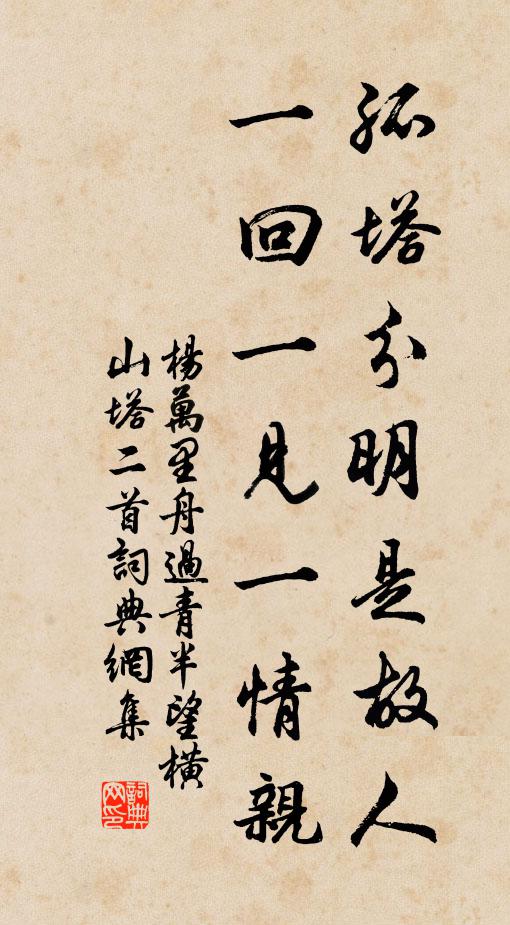 孤塔分明是故人
一回一見一情親
楊萬里舟過青半望橫
山塔二首詞典網集
詞典
网印